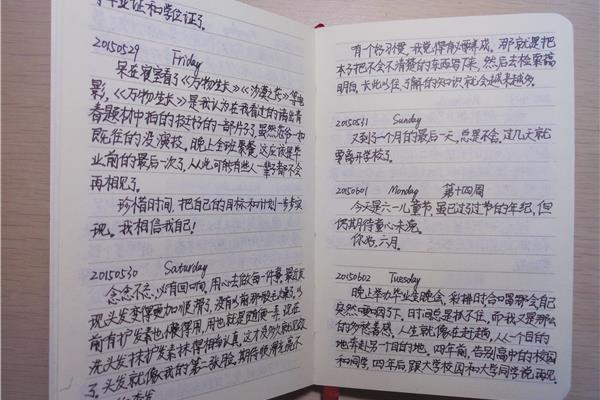 毕业证和学位证了。
20150529 Friday
呆在寝室看了《万物生长》《沙漠之花》等电
影,《万物生长》是我认为在我看过的诸出青
春题材中拍的较好的一部片子了,虽然苍爷一如
既往的没演技。晚上全班聚餐,这应该是毕
业前的最后一次了,从此可能有些人一辈子都不会
再相见了。
珍惜时间,把自己的目标和计划一步步实
现。我相信我自己!
20150530 Saturday
念念不忘,必有回响,用心去做每一件事。最近发
现头发变得更加顺滑了,没有以前那般毛燥了。以
前有护发素也懒得用,用也就是随便一弄,现在
洗头抹护发素抹得相当认真,这才没多久就
了。头发就像我的第二张脸,期待
有个好习惯,我觉得有必要养成。那就是把
本子把不会不清楚的东西写下来,然后去检索搞
明白,长此以往,了解的知识就会越来越多。
20150531 Sunday
又到了一个月的最后一天,总是不舍。过几天就
要离开学校了。
20150601 Monday 第十四周
今天是六一儿童节,虽已过了过节的年纪,但
仍期待童心未泯。
你好,六月。
20150602 Tuesday
晚上举办毕业生晚会,彩排时合唱那会自己
突然哽咽了下。时间总是抓不住,而我又是那么
的多愁善感,人生就像在赶趟,从一个目的
地奔赴另一个目的地。四年前,告别高中的校园
和同学,四年后跟大学校园和大学同学说再见。